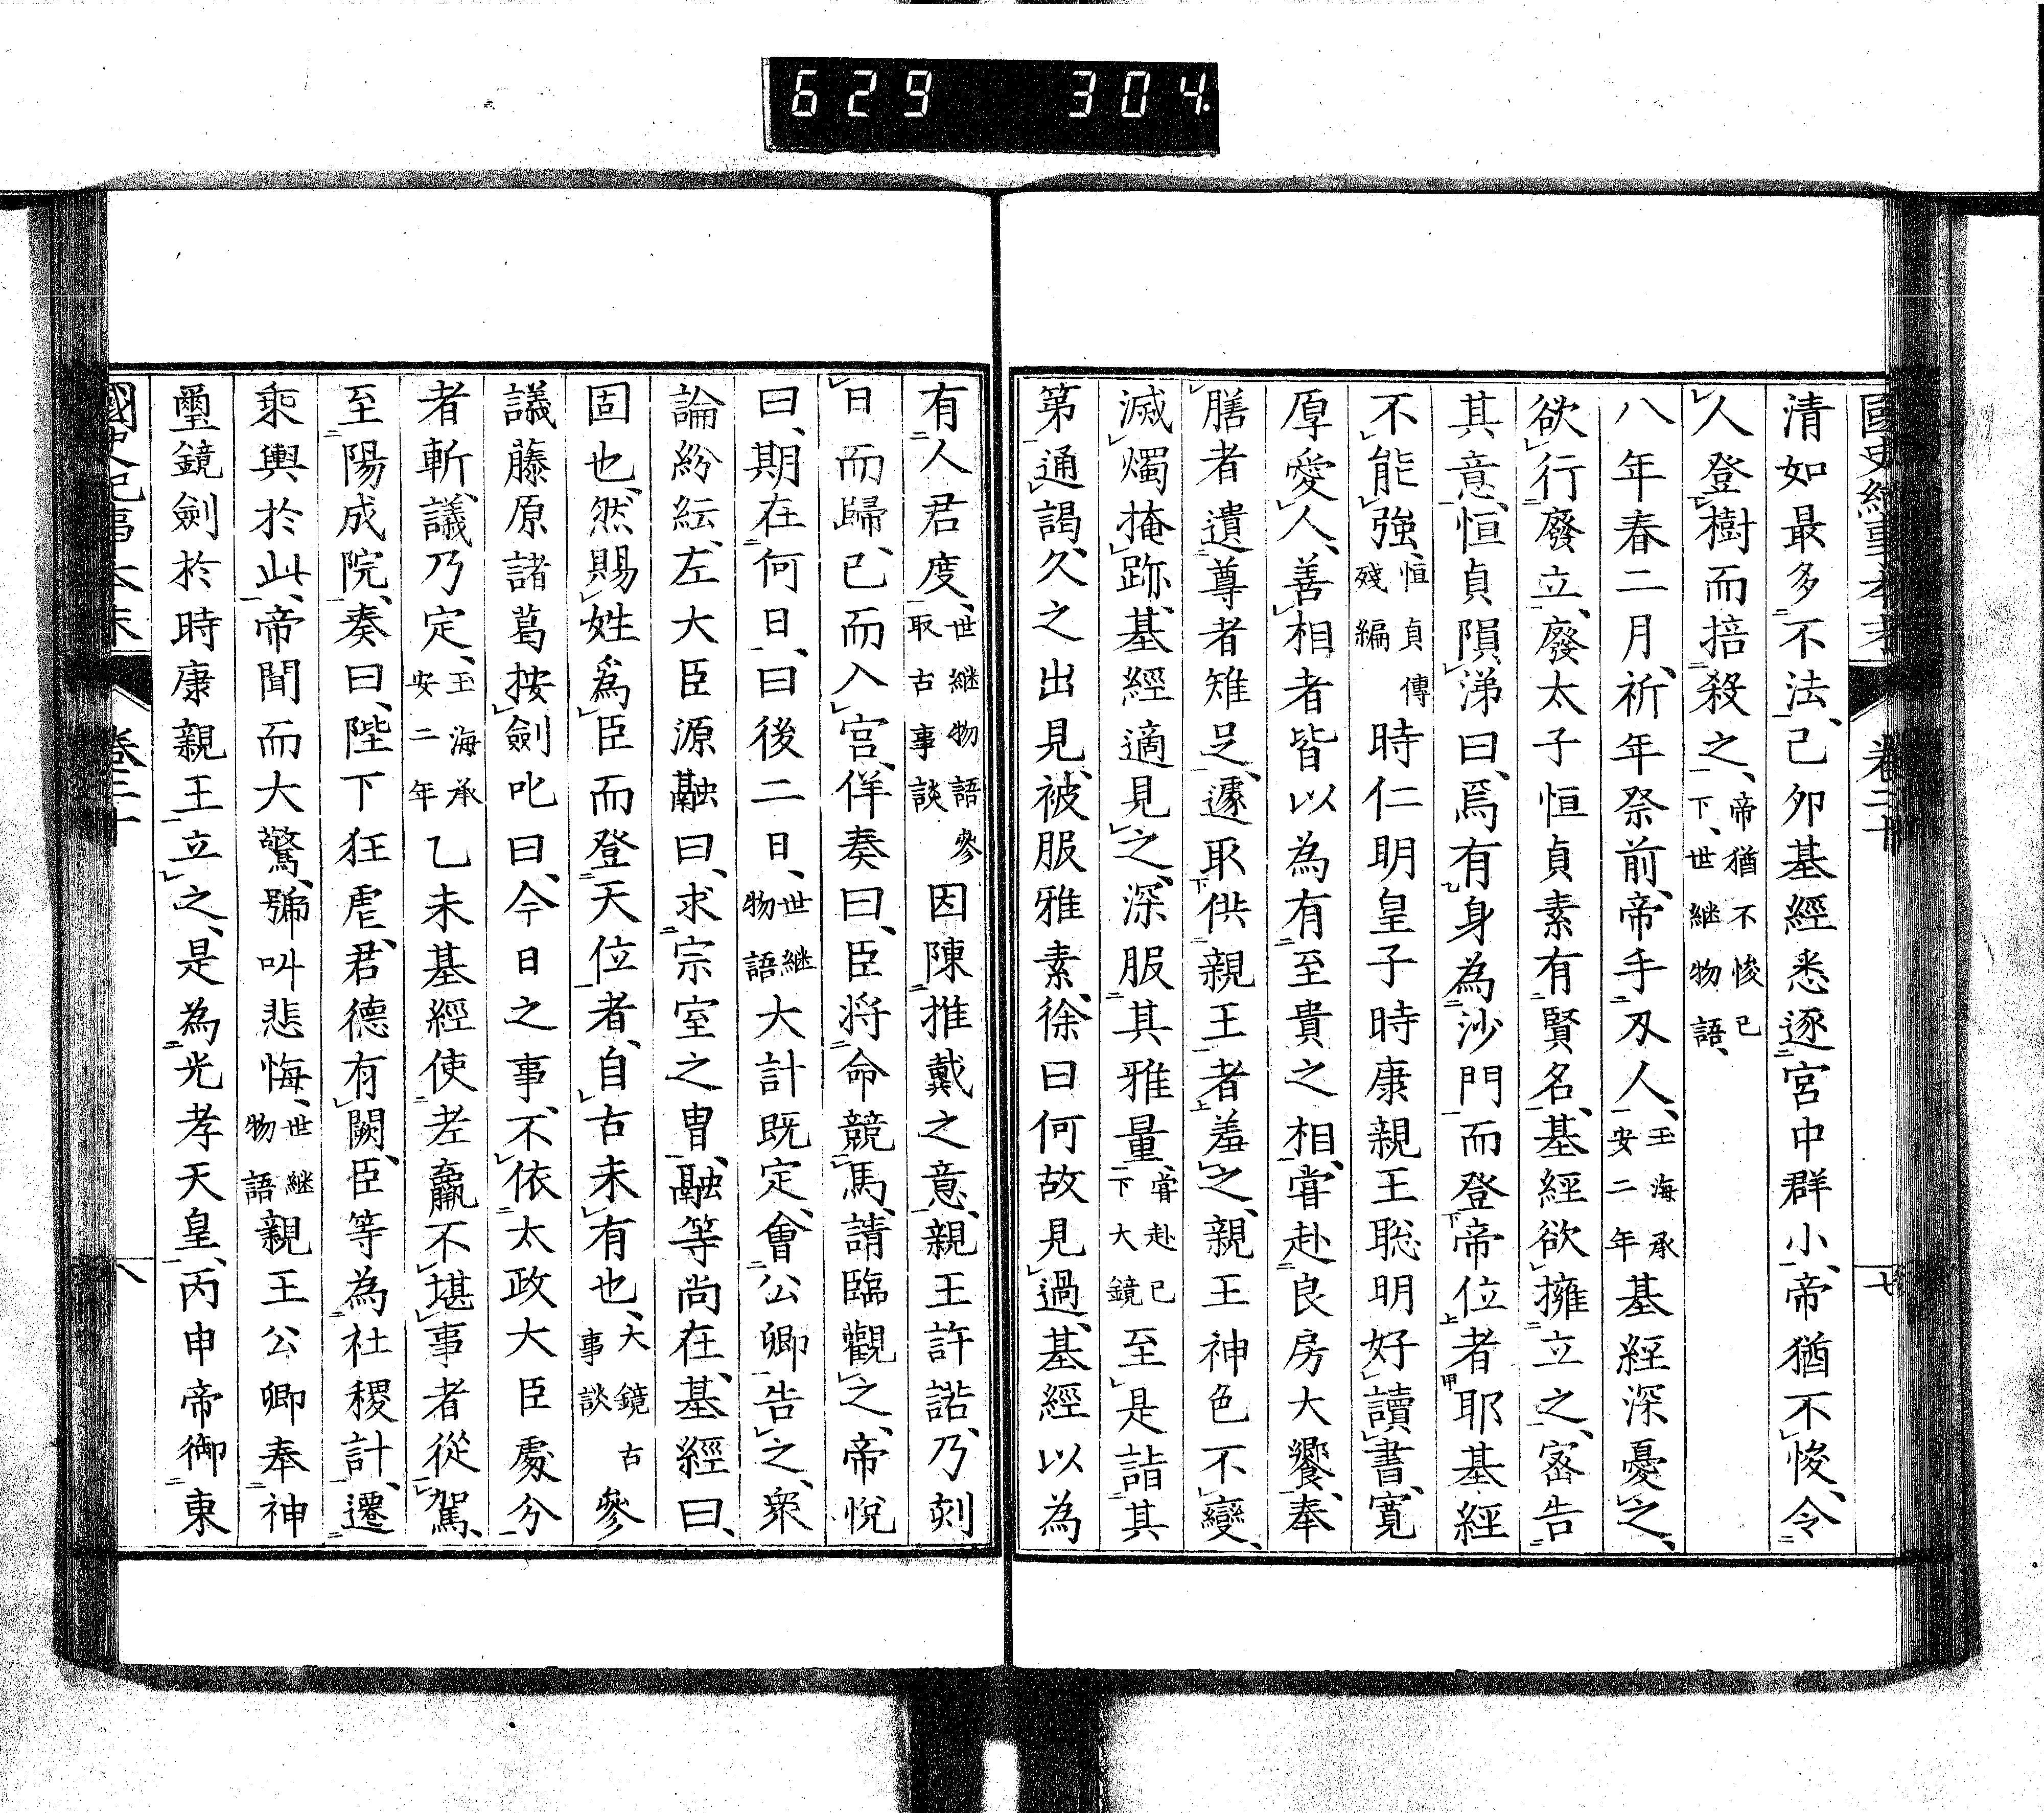 629 304
國史紀事本末 卷二十 七
清如最多不法、己卯基經悉逐宮中群小、帝猶不悛、令
人登樹而掊殺之、帝猶不悛已下、世継物語、
八年春二月、祈年祭前、帝手刃人、玉海承安二年基經深憂之、
欲行廢立、廢太子恒貞素有賢名、基經欲擁立之、密告
其意、恒貞隕涕曰、焉有身為沙門而登帝位者耶基經
不能強、恒貞傳殘編時仁明皇子時康親王聡明好讀書、寛
厚愛人、善相者皆以為有至貴之相、嘗赴良房大饗、奉
膳者遺尊者雉足、遽取供親王者羞之、親王神色不變、
滅燭掩跡、基經適見之、深服其雅量、嘗赴已下大鏡至是詣其
第通謁、久之出見、被服雅素、徐曰何故見過、基經以為
有人君度、世継物語參取古事談因陳推戴之意、親王許諾、乃刻
日而歸、已而入宮、佯奏曰、臣將命競馬、請臨觀之、帝悅
曰、期在何日、曰後二日、世継物語大計既定、會公卿告之、衆
論紛紜、左大臣源融曰、求宗室之冑、融等尚在、基經曰、
固也、然賜姓爲臣而登天位者、自古未有也、大鏡古事談參
議藤原諸葛按劍叱曰、今日之事、不依太政大臣處分
者斬、議乃定、玉海承安二年乙未基經使老羸不堪事者從駕、
至陽成院、奏曰、陛下狂虐、君德有闕、臣等為社稷計、遷
乘輿於此、帝聞而大驚、號叫悲悔、世継物語親王公卿奉神
璽鏡劍於時康親王立之、是為光孝天皇、丙申帝御東
國史紀事本末 卷二十 八